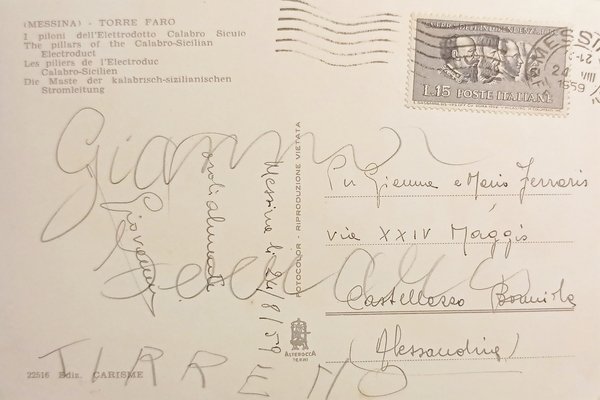 (MESSINA) - TORRE FARO
I piloni dell'Elettrodotto Calabro Siculo
The pillars of the Calabro-Sicilian
Electroduct
Les piliers de l'Electroduc
Calabro-Sicilien
Die Maste der kalabrisch-sizilianischen
Stromleitung
L.15 POSTE ITALIANE
MESSINA
24 VIII
1959
Gianna
Ferraris
TIRRENO
Messina li 24/8/59
cordialmente
Giovanni
FOTOCOLOR - RIPRODUZIONE VIETATA
Per Gianna e Mario Ferraris
via XXIV Maggio
Castellazzo Bormida
(Alessandria)
ALTEROCCA
TERNI
22516 Ediz. CARISME